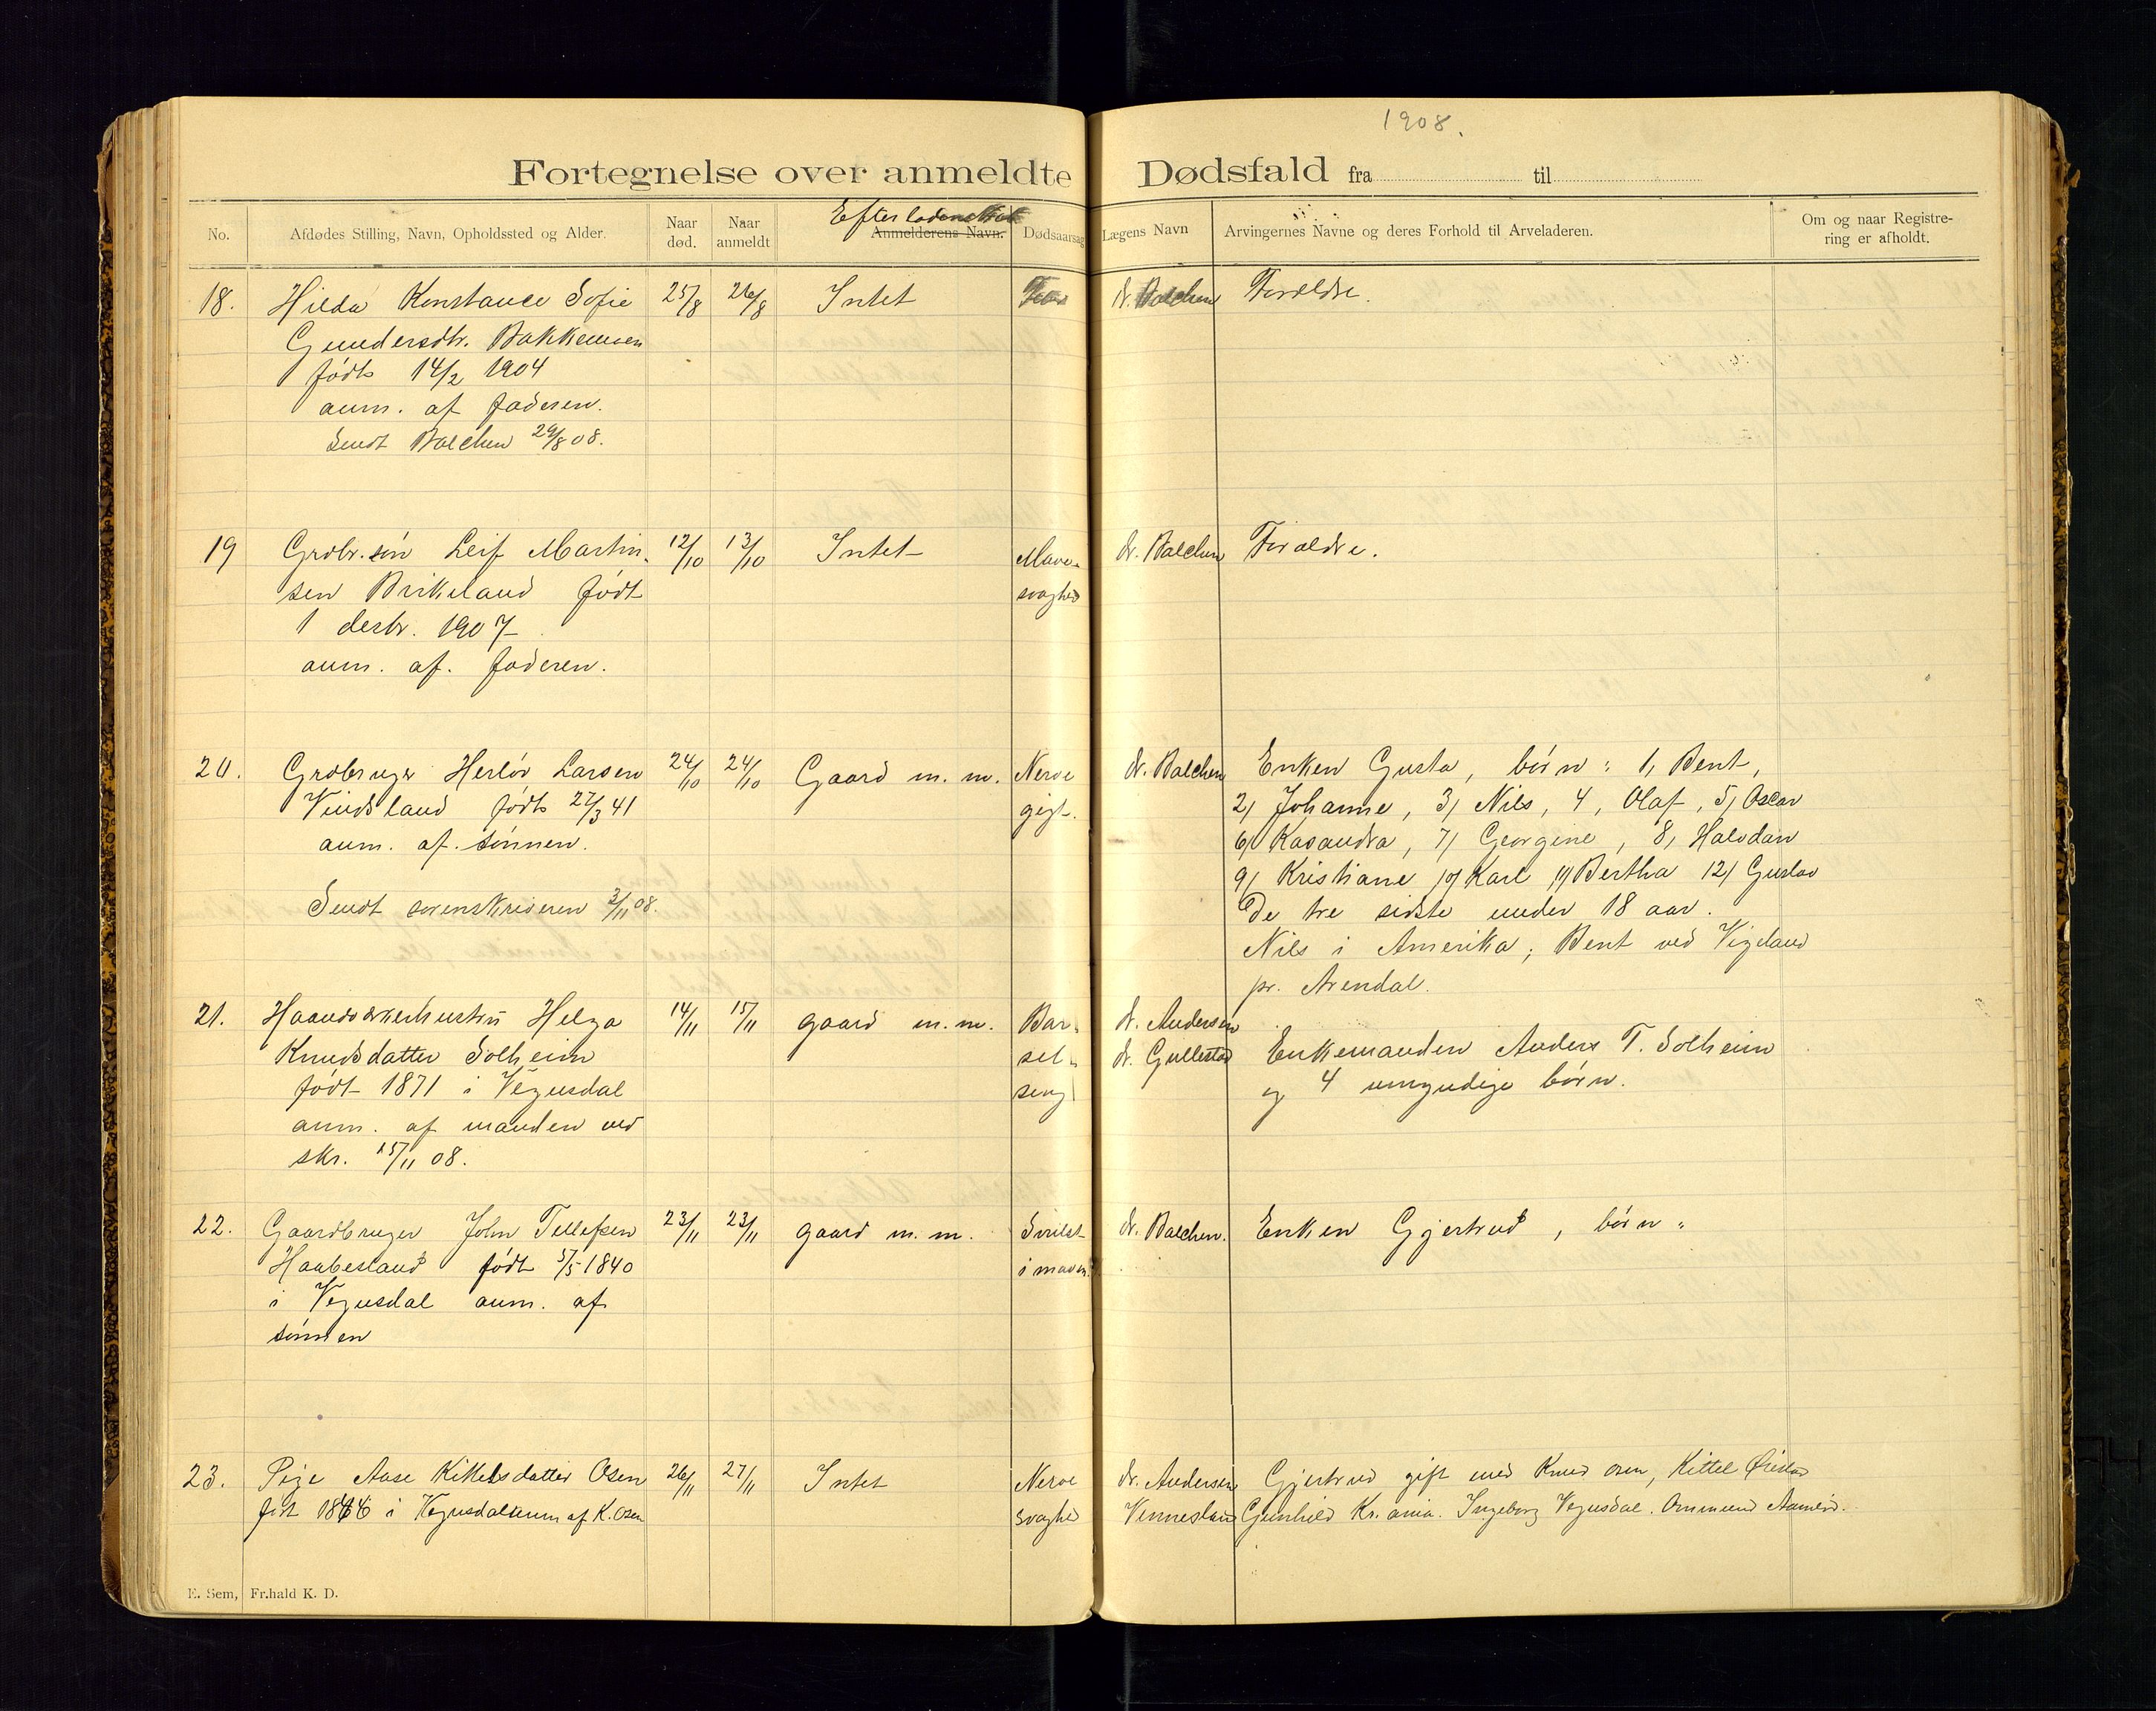 1908.
Fortegnelse over anmeldte Dødsfald fra til
No. Afdødes Stilling, Navn, Opholdssted og Alder. Naar død. Naar anmeldt Anmelderens Navn. Dødsaarsag Lægens Navn Arvingernes Navne og deres Forhold til Arveladeren. Om og naar Registrering er afholdt.
18. Hilda Konstance Sofie 25/8 26/8 Intet dr. Balchen Forældre.
Gundersdtr. Bakkemoen
født 14/2 1904
anm. af faderen.
Sendt Balchen 29/8 08.
19 Grdbr. søn Leif Martin- 12/10 13/10 Intet Mave- dr. Balchen Forældre.
sen Birkeland født svaghed
1 desbr. 1907
anm. af. faderen.
20. Grdbruger Herløv Larsen 24/10 24/10 Gaard m. m. Nerve dr. Balchen Enken Gusta, børn: 1, Bent,
Vindsland født 27/3 41 gigt. 2) Johanne, 3) Nils, 4, Olaf, 5) Oscar
anm. af. sønnen. 6) Kasandra, 7) Georgine, 8, Halvdan
9) Kristiane 10) Karl 11) Bertha 12) Gustav
Sendt sorenskriveren 3/11 08. De tre sidste under 18 aar.
Nils i Amerika; Bent ved Vigeland
pr. Arendal.
21. Haandværkerhustru Helga 14/11 15/11 gaard m.m. Bar- dr. Andersen
Knudsdatter Solheim sel- dr. Gullestad Enkemanden Anders T. Solheim
født 1871 i Vegusdal seng og 4 umyndige børn.
anm. af manden ved
skr. 15/11 08.
22. Gaardbruger John Tellefsen 23/11 23/11 gaard m. m. Svulst dr. Balchen. Enken Gjertrud, børn:
Haabesland født 5/5 1840 i maven
i Vegusdal anm. af
sønnen
23. Pige Aase Kittelsdatter Osen 26/11 27/11 Intet Nerve dr. Andersen Gjertrud gift med Knud Osen, Kittel
født 1846 i Vegusdal anm af K. Osen svaghed Vennesland Gunhild Kr. ania. Ingeborg Vegusdal. Ommund
E. Sem, Fr.hald K. D.